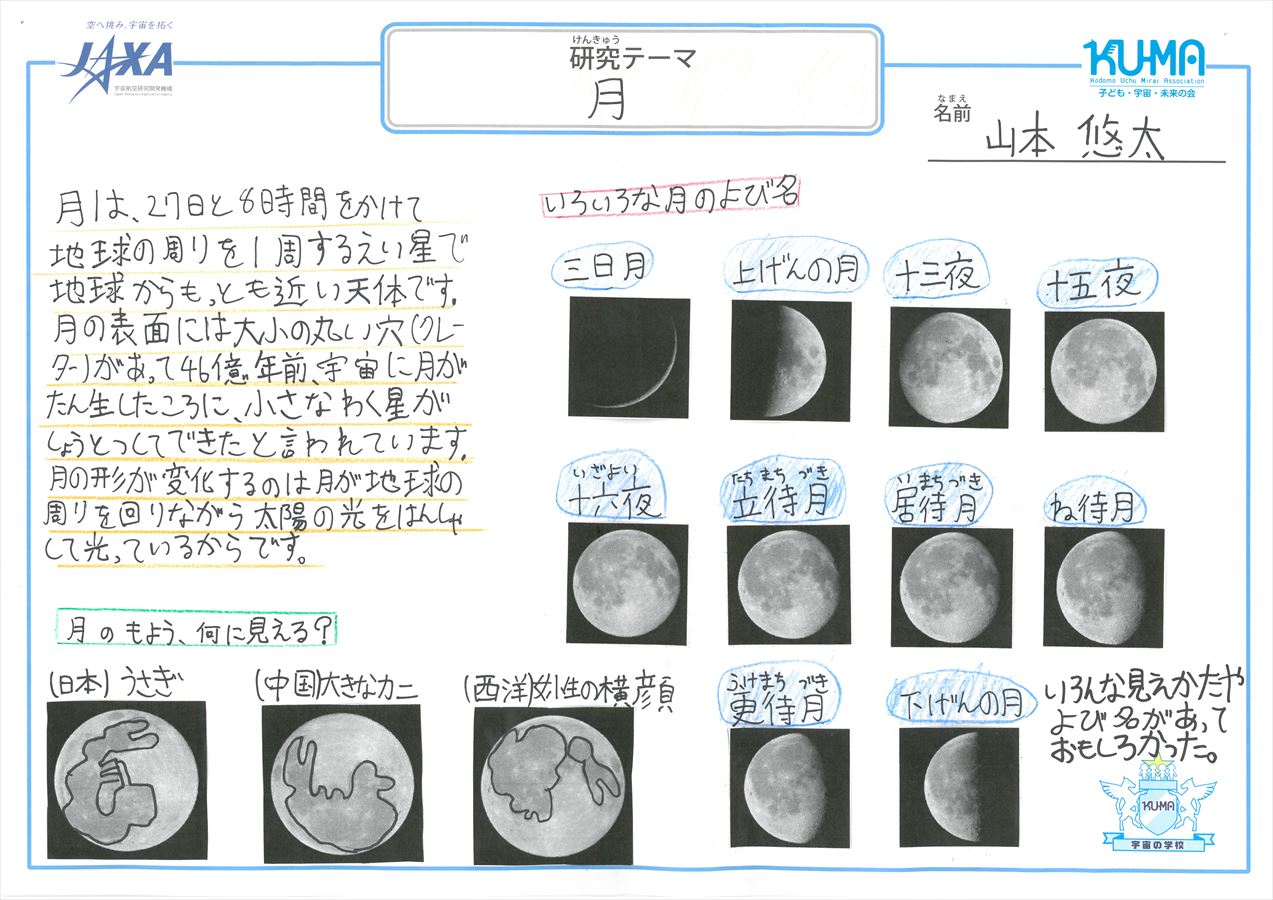 空へ挑み、宇宙を拓く
JAXA
宇宙航空研究開発機構
Japan Aerospace Exploration Agency
けんきゅう
研究テーマ
月
KU-MA
Kodomo Uchu Mirai Association
子ども・宇宙・未来の会
なまえ
名前
山本 悠太
月は、27日と8時間をかけて
地球の周りを1周するえい星で
地球からもっとも近い天体です。
月の表面には大小の丸い穴(クレー
ター)があって46億年前、宇宙に月が
たん生したころに、小さなわく星が
しょうとつしてできたと言われています。
月の形が変化するのは月が地球の
周りを回りながら太陽の光をはんしゃ
して光っているからです。
月のもよう、何に見える?
(日本)うさぎ
(中国)大きなカニ
(西洋)女性の横顔
いろいろな月のよび名
三日月
上げんの月
十三夜
十五夜
いざよい
十六夜
たちまちづき
立待月
いまちづき
居待月
ね待月
ふけまちづき
更待月
下げんの月
いろんな見えかたや
よび名があって
おもしろかった。
KU-MA
宇宙の学校